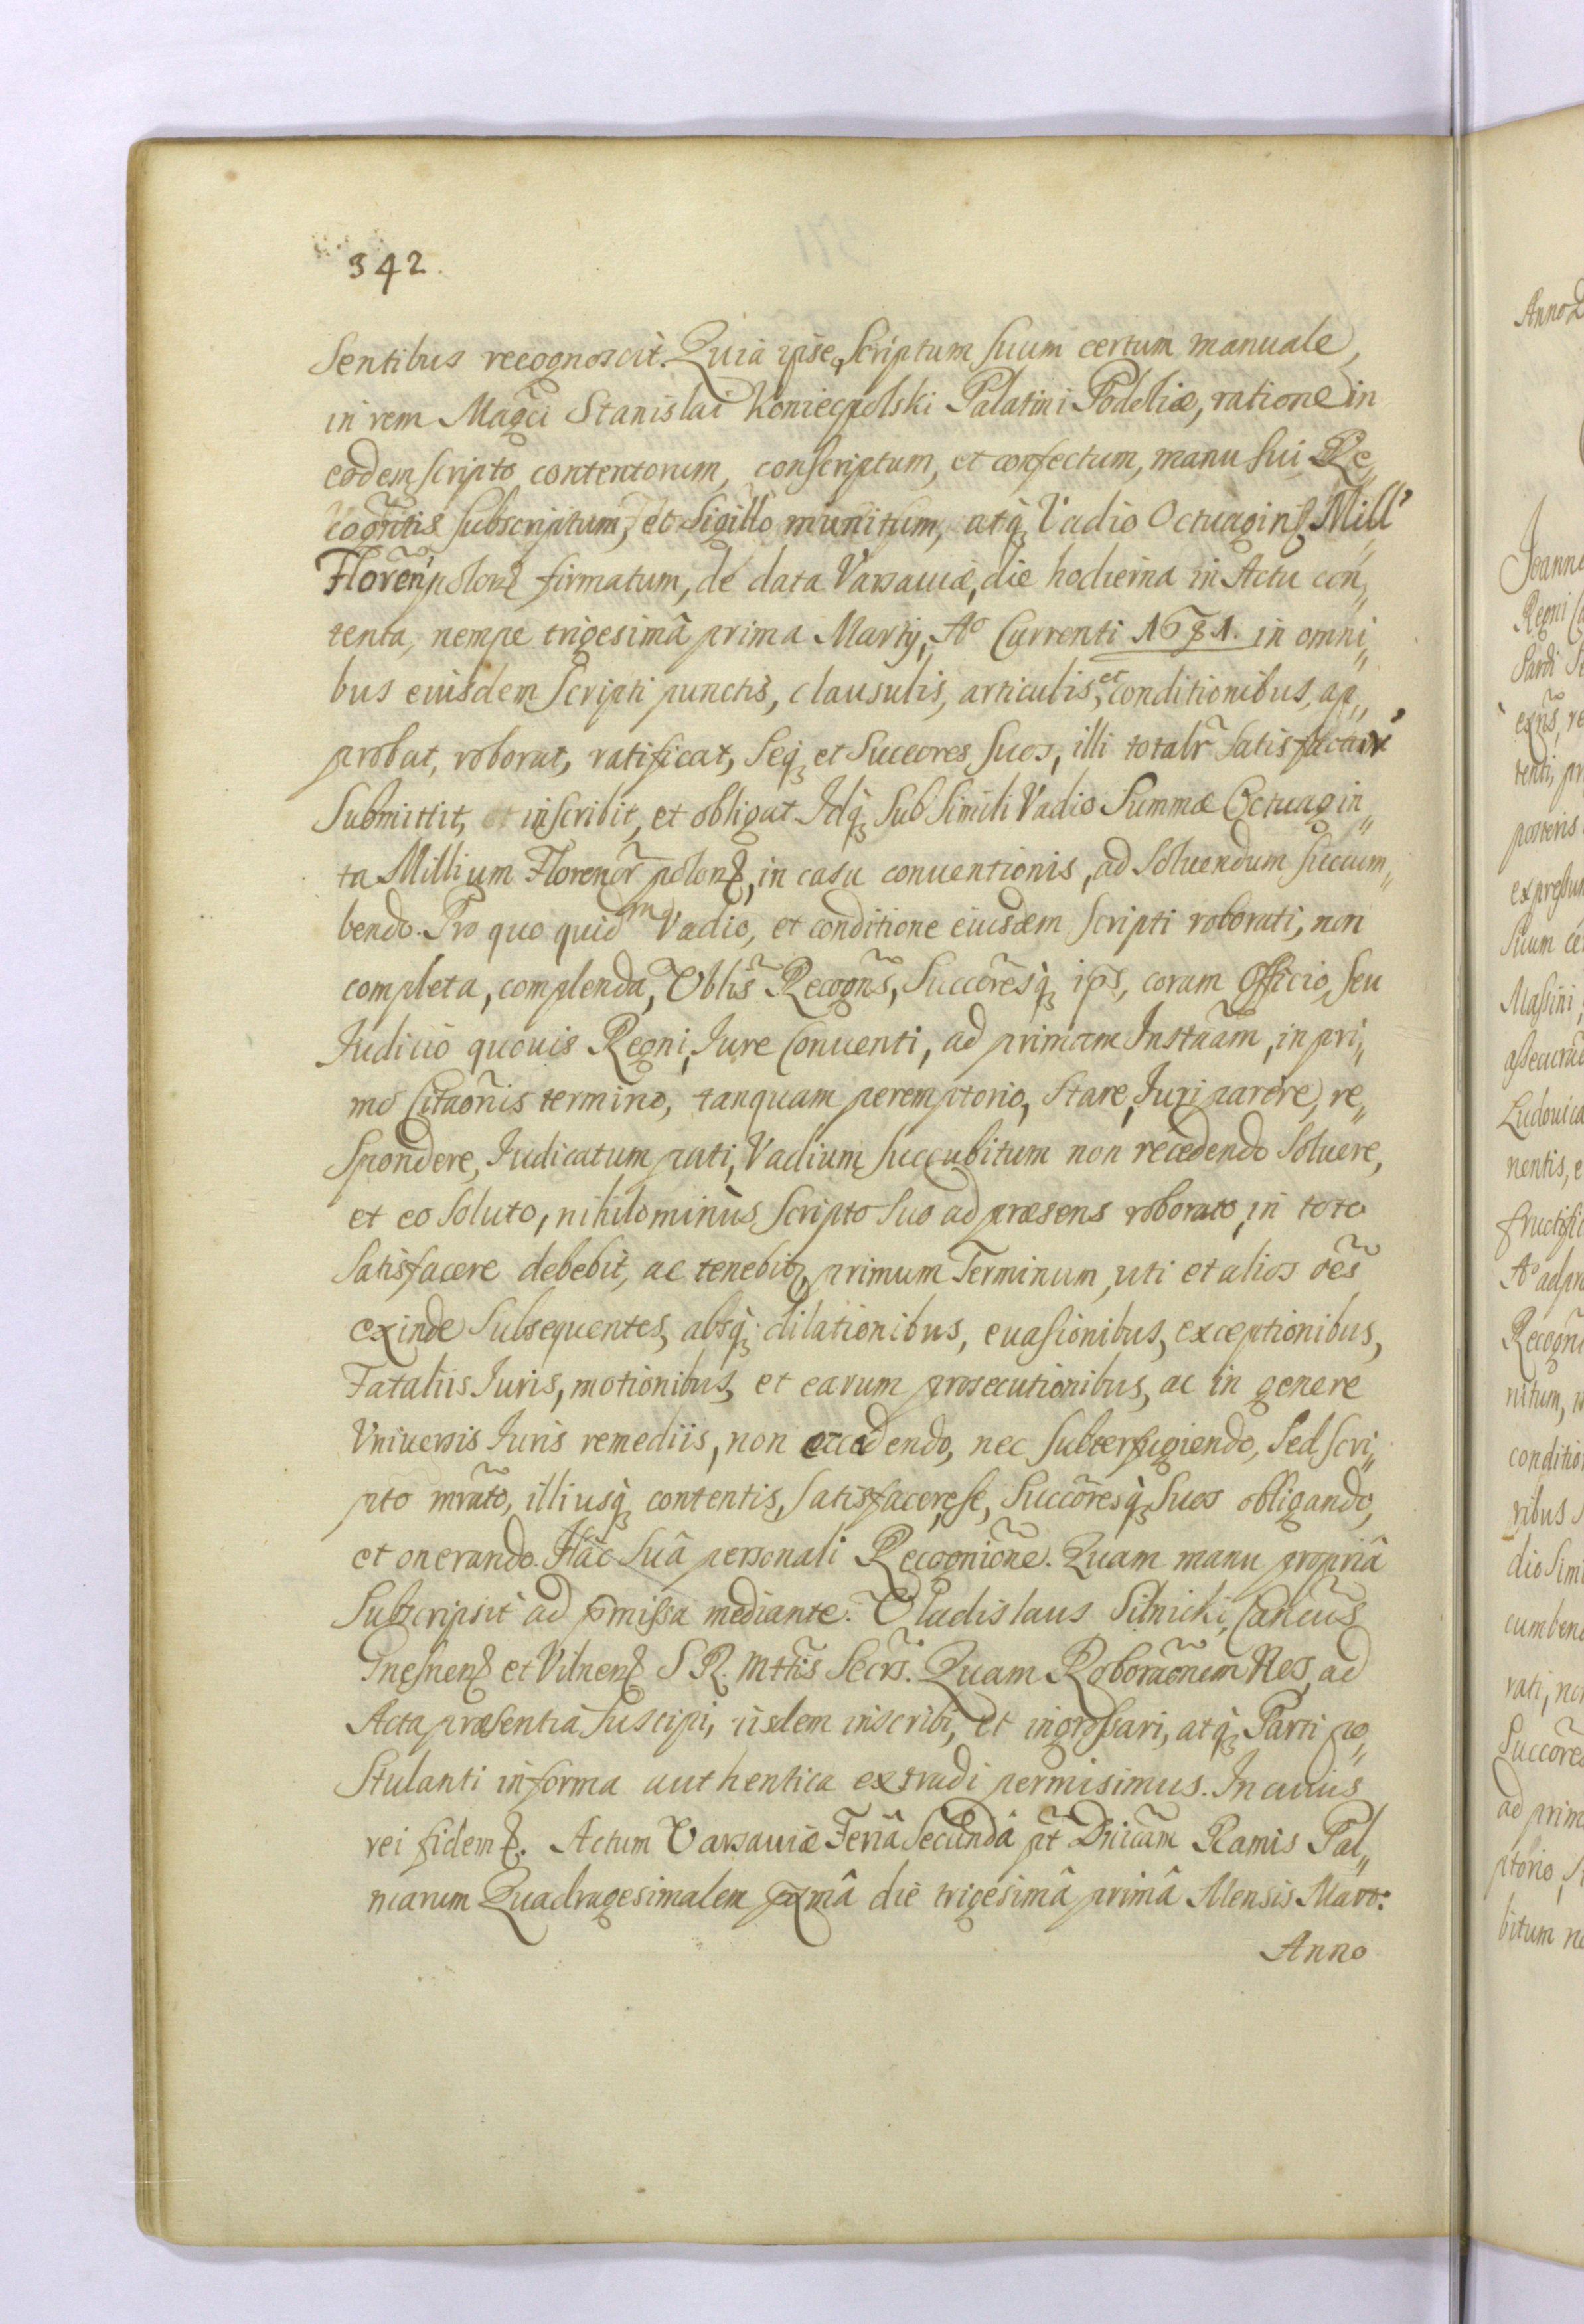 342.
Sentibus recognoscit. Quia ipse, Scriptum Suum certum manuale,
in rem Magci Stanislai Koniecpolski Palatini Podoliæ, ratione in
eodem scripto contentorum, conscriptum, et confectum, manu sui Re„
cogntis subscriptum, et Sigillo munitum, atq; Vadio Octuagin Mill'
Floren' polon firmatum, de data Varsauiæ, die hodierna in Actu con„
tenta, nempe trigesimâ prima Martij, Ao Currenti 1681. in omni„
bus eiusdem Scripti punctis, clausulis, articulis, et conditionibus, ap„
probat, roborat, ratificat, Seq; et Succores Suos, illi totalr Satis
Submittit, et inscribit, et obligat. Idq; Sub Simili Vadio Summæ Octuagin„
ta Millium Florenor polon, in casu conuentionis, ad Soluendum Succum„
bendo. Pro quo quidm Vadio, et conditione eiusdem Scripti roborati, non
completa, complenda, Oblis Recogns, Succoresq; ips, coram Officio, seu
Iudicio quouis Regni, Iure Conuenti, ad primam Instnam, in pri„
mo Citaonis termino, tanquam peremptorio, Stare, Iuri parére, re„
Spondere, Iudicatum pati, Vadium Succubitum non recedendo Soluere,
et eo Soluto, nihilominùs Scripto Suo ad præsens roborato, in toto
Satisfacere debebit, ac tenebit, primum Terminum, uti et alios oes
exinde Subsequentes, absq; dilationibus, euasionibus, exceptionibus,
Fataliis Iuris, motionibus, et earum prosecutionibus, ac in genere
Vniuersis Iuris remediis, non endo, nec Subterfugiendo, Sed Scri„
pto mrato, illiusq; contentis, Satisfacere, se, Succoresq; Suos obligando,
et onerando. Hâc Suâ personali Recognione. Quam manu propriâ
Subscripsit ad pmissa mediante. Vladislaus Silnicki, Cancus
Gnesnen et Vilnen S R. Mttis Secrs. Quam Roboraonem Nos, ad
Acta præsentia Suscipi, iisdem inscribi, et ingrossari, atq; Parti po„
Stulanti in forma authentica extradi permisimus. In cuius
rei fidem. Actum Varsauiæ Feriâ Secundâ pt Dnicam Ramis Pal„
marum Quadragesimalem pxmâ die trigesimâ primâ Mensis Mart:
Anno